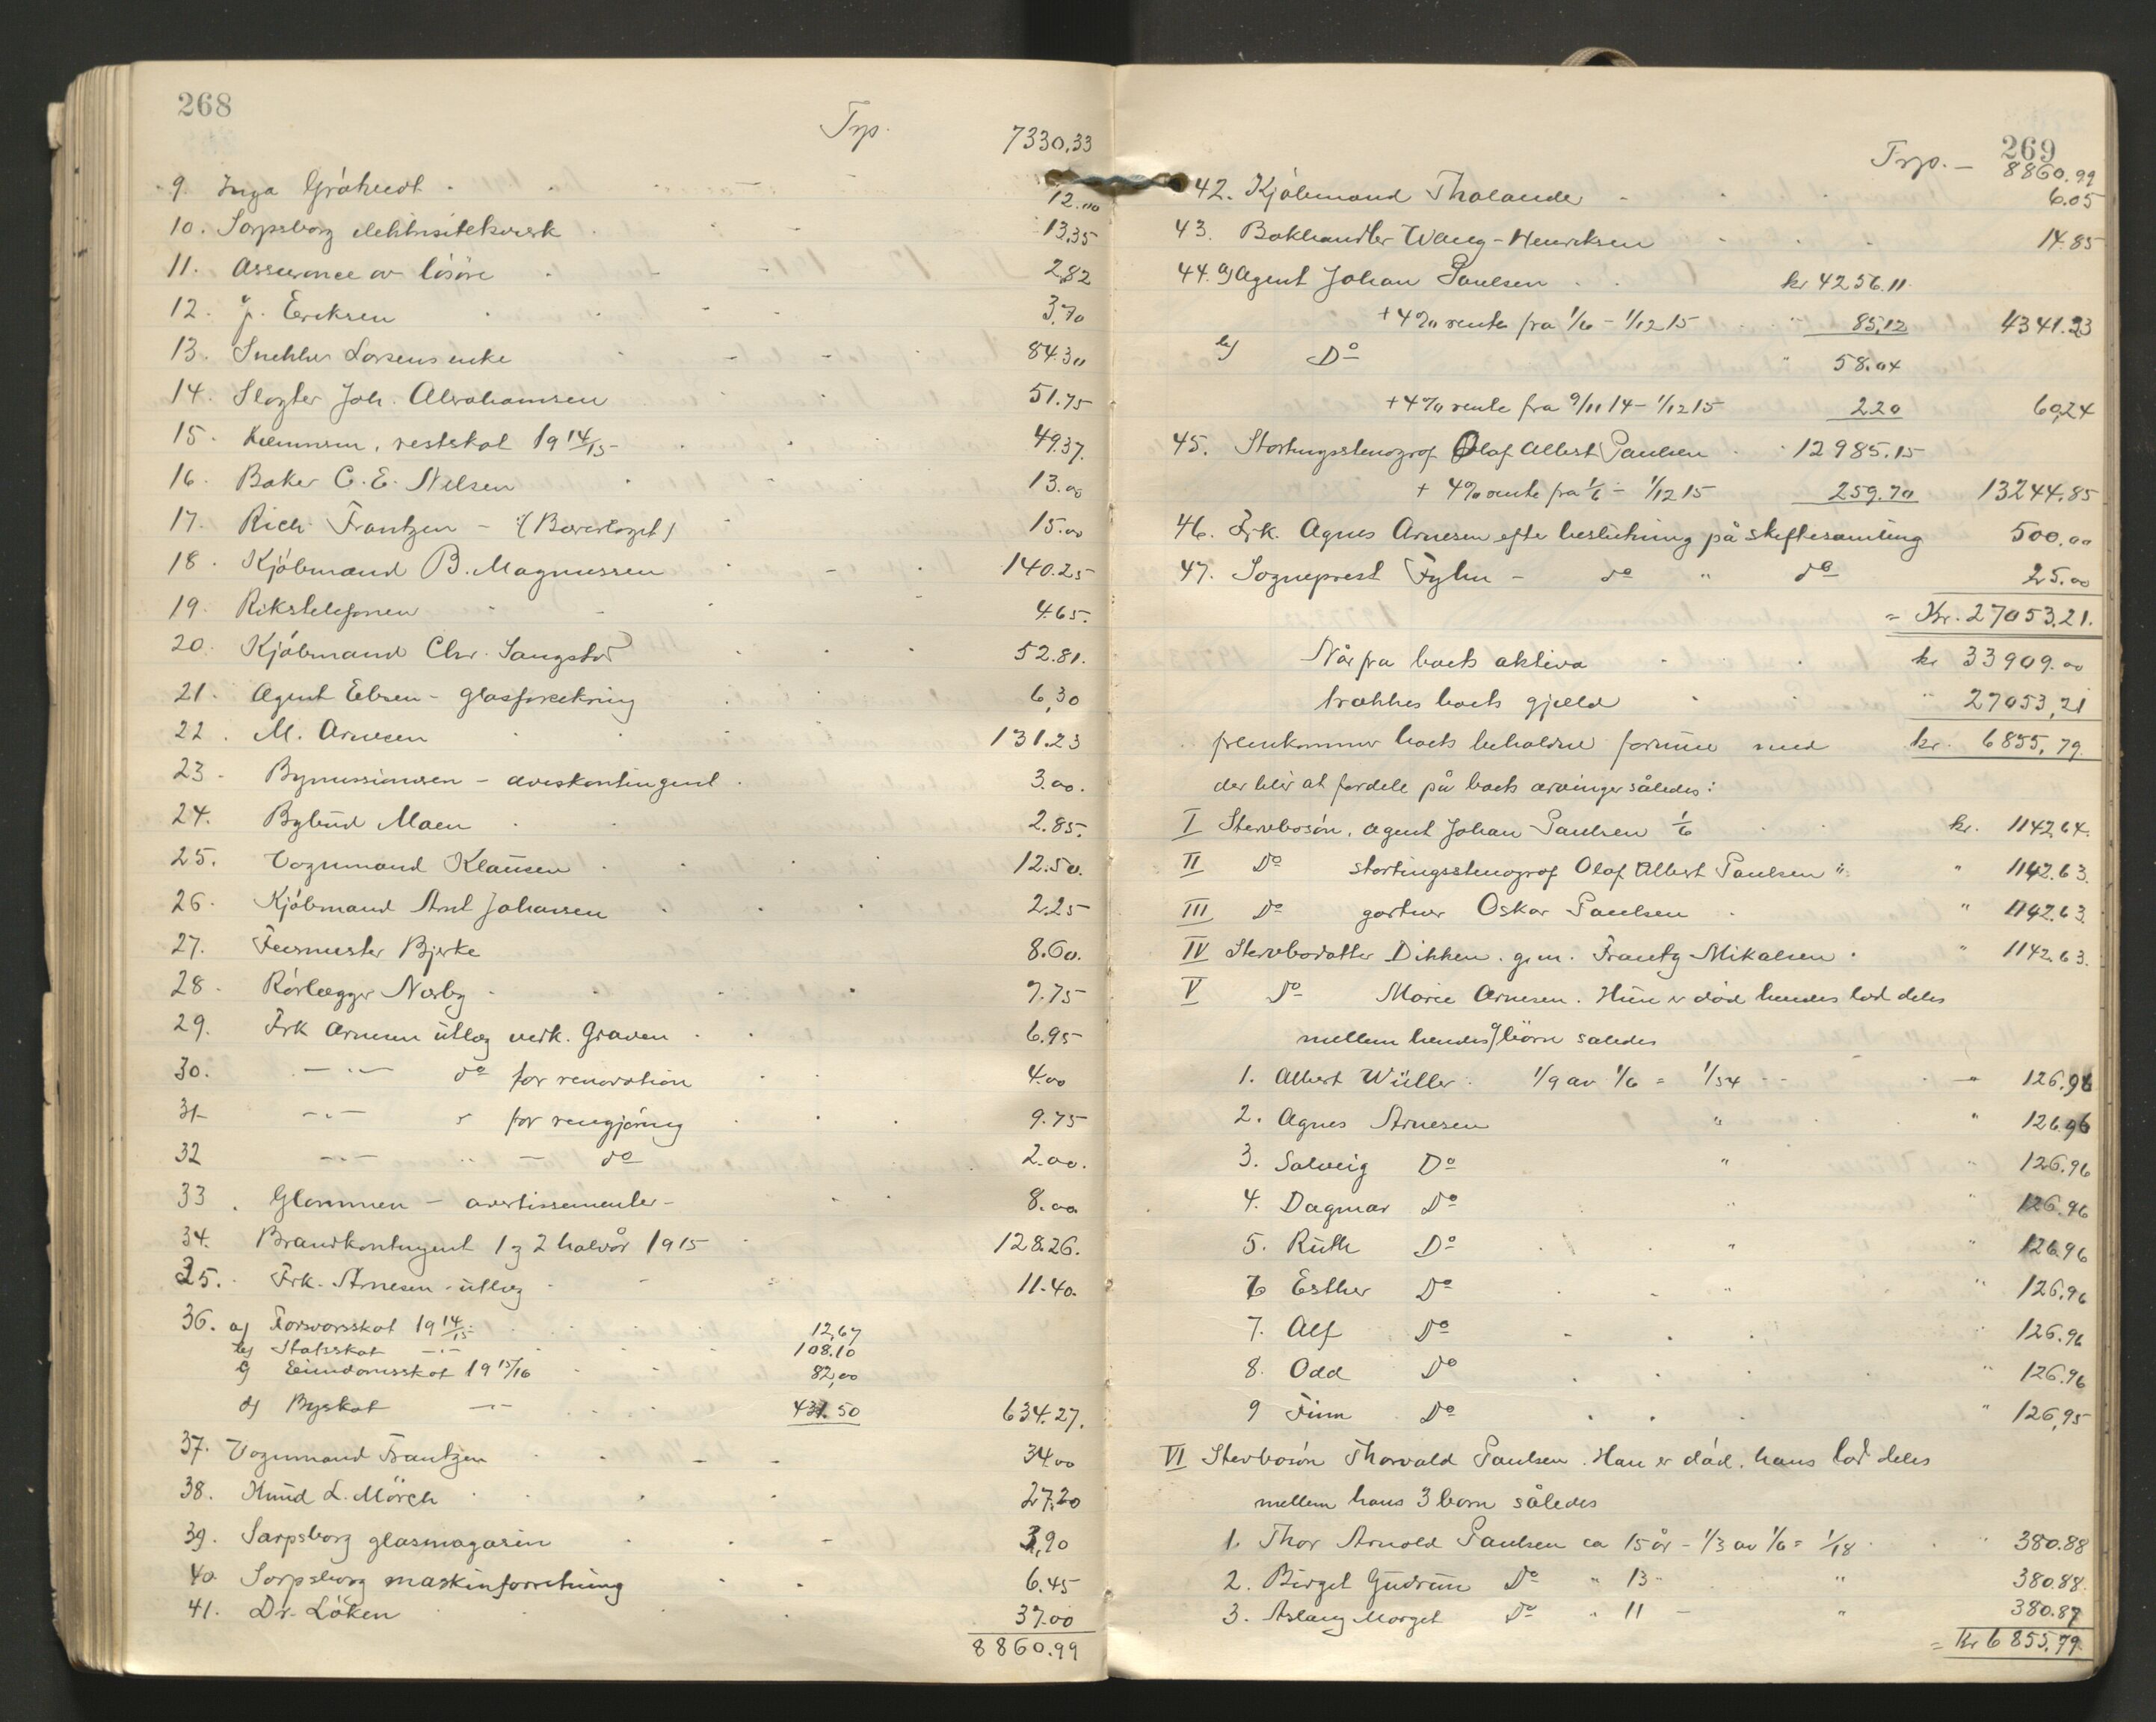 268
Trp. 7330.33
9. Inga Gråhudt 12.00
10. Sarpsborg elektrisitetsverk 13.35
11. Assurance av lösöre 2.82
12. J. Eriksen 3.70
13. Snekker Larsens enke 84.30
14. Slagter Joh. Abrahamsen 51.75
15. Kemneren, restskat 1914/15 49.37.
16. Baker C. E. Nilsen 13.00
17. Rich. Frantzen - (Bærerlaget) 15.00
18. Kjöbmand B. Magnussen 140.25
19. Rikstelefonen 4.65.
20. Kjöbmand Chr. Sangstad 52.81.
21. Agent Ebsen - glasforsikring 6,30
22. M. Arnesen 131.23
23. Bymissionæren - aviskontingent 3.00.
24. Bybud Moen 2.85.
25. Vognmand Klausen 12.50.
26. Kjöbmand Ant Johansen 2.25
27. Feiermester Bjerke 8.60.
28. Rörlægger Nærby 7.75
29. Frk Arnesen utlæg vedk. Graven 6.95
30. -"- do for renovation 4.00
31. -"- " for rengjöring 9.75
32 -"- " - do 2.00.
33. Glommen - avertissementer - 8.00
34. Brandkontingent 1 & 2 halvår 1915 128.26.
35. Frk. Arnesen - utlæg 11.40.
36. a) Forsvarsskat 1914/15 12,67
b) Statsskat -"- 108.10
c) Eiendomsskat 1915/16 82,00
d) Byskat -"- 431.50 634.27.
37. Vognmand Frantzen 34.00
38. Knud L. Mörch 27.20
39. Sarpsborg glasmagasin 3,90
40. Sarpsborg maskinforretning 6.45
41. Dr. Löken 37.00
8860.99
269
Trp. - 8860.99
42. Kjöbmand Tholander 6.05
43. Bokhandler Wang-Henriksen 14.85
44. a) Agent Johan Paulsen kr 4256.11
+ 4% rente fra 1/6 - 1/12 15 " 85,12 4341.23
b) Do " 58.04
+ 4% rente fra 9/11 14 - 1/12 15 2.20 60,24
45. Stortingsstenograf Olaf Albert Paulsen 12985.15
+ 4% rente fra 1/6 - 1/12 15 259.70 13244.85
46. Frk. Agnes Arnesen efter beslutning på skiftesamling 500.00
47. Sogneprest Fyhn - do " do 25.00
= Kr. 27053.21.
Når fra boets aktiva kr 33909.00
trækkes boets gjeld " 27053,21
fremkommer boets beholdne formue med kr. 6855,79.
der blir at fordele på boets arvinger således:
I Stervbosön, agent Johan Paulsen 1/6 kr. 1142,64.
II Do stortingsstenograf Olaf Albert Paulsen " " 1142.63.
III Do gartner Oskar Paulsen " 1142.63.
IV Stervbodatter Dikken. g. m. Frantz Mikalsen. " 1142.63.
V Do Marie Arnesen. Hun er död hendes lod deles
mellem hendes 9 börn således
1. Albert Wüller 1/9 av 1/6 = 1/54 126.96
2. Agnes Arnesen " " 126.96
3. Solveig Do " " 126.96
4. Dagmar Do " " 126.96
5. Ruth Do " " 126.96
6 Esther Do " " 126,96
7. Alf Do 126.96
8. Odd Do " 126.96
9 Finn Do " 126,95
VI Stervbosön Thorvald Paulsen. Han er död. hans lod deles
mellem hans 3 börn således
1. Thor Arnold Paulsen ca 15 år - 1/3 av 1/6 = 1/18 " 380.88
2. Birgit Gudrun Do " 13 " " 380.88.
3. Aslaug Margit Do " 11 - " 380.87
= Kr 6855,79.